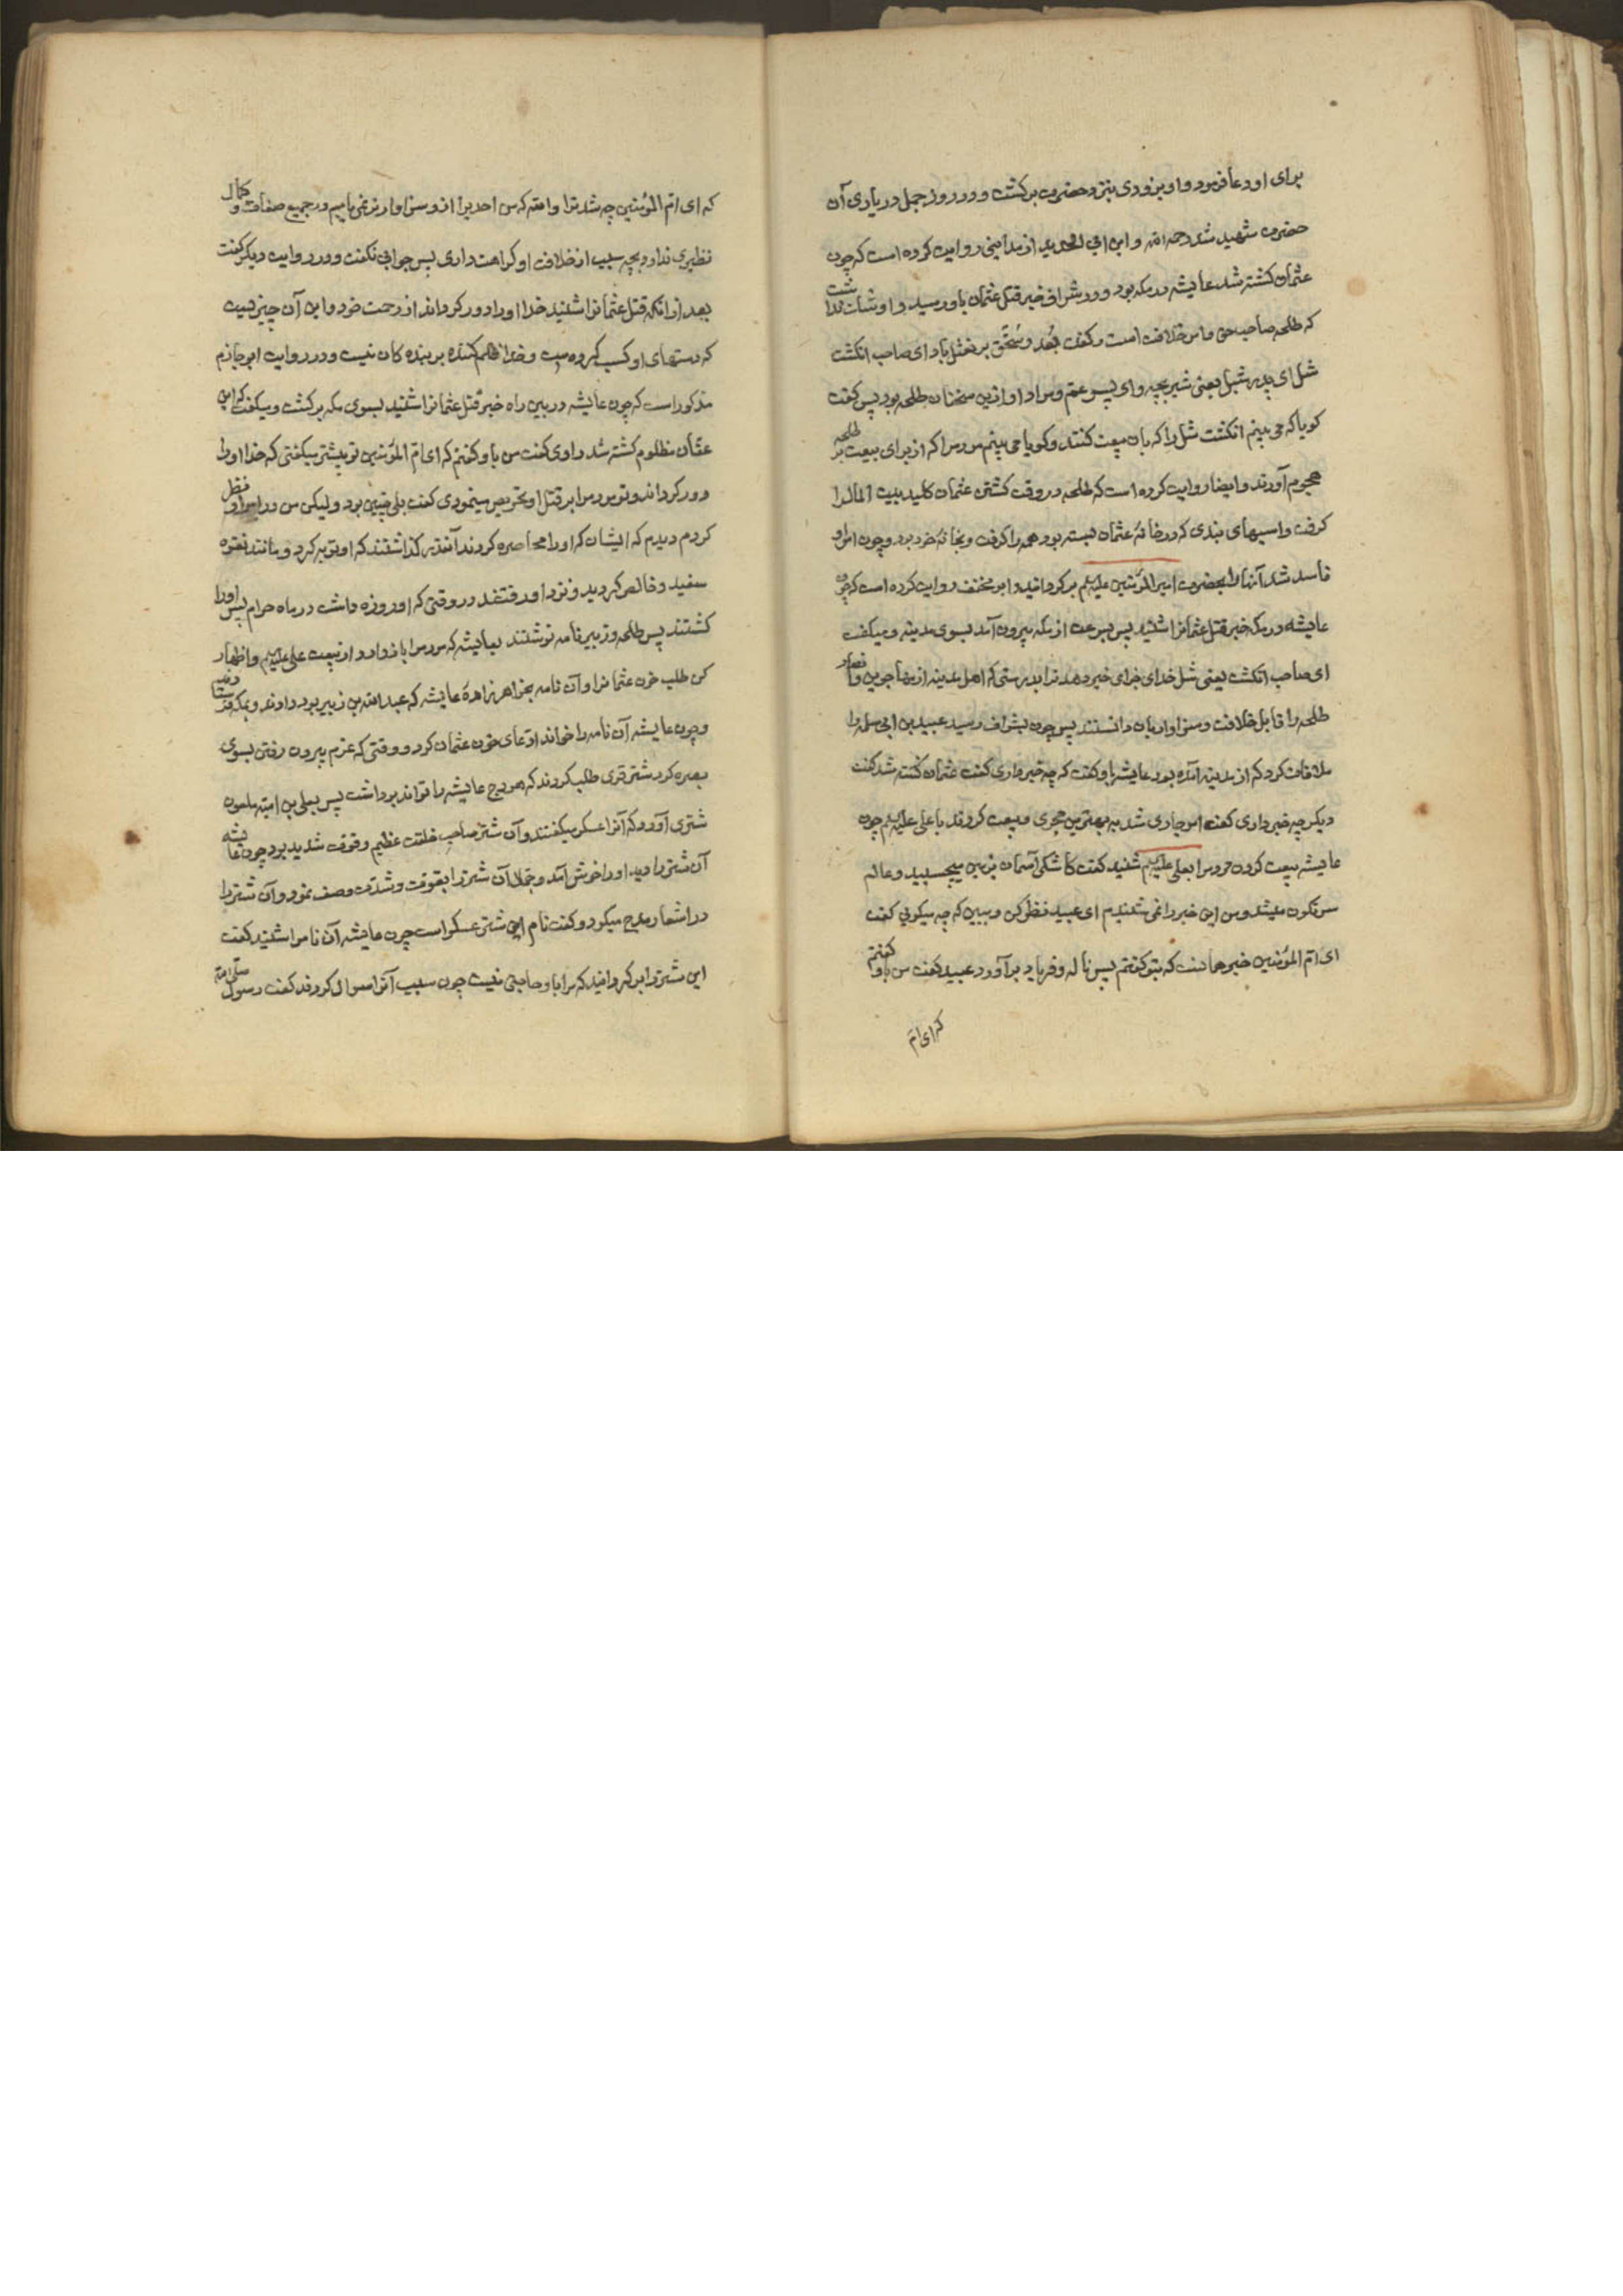 برای او دعا فرمود و او بزودی بنزد حضرت برکشت و در روز جمل در یاری آن
حضرت شهید شد رحمه الله و ابن ابی الحدید از مداینی روایت کرده است که چون
عثمان کشته شد عایشه در مکه بود و در شراف خبر قتل عثمان باو رسید و او شک نداشت
که طلحه صاحب حق و امر خلافت است و کفت بُعد و سُحق بر نعثل باد ای صاحب انکشت
شل ای پدر شبل یعنی شیر بچه و ای پسر عم و مراد او ازین سخنان طلحه بود پس کفت
کویا که می بینم انکشت شل را که بان بیعت کنند و کویا می بینم مردم را که از برای بیعت بر طلحه
هجوم آورند و ایضا روایت کرده است که طلحه در وقت کشتن عثمان کلید بیت المال را
کرفت و اسبهای بندی که در خانهٔ عثمان بسته بود همه را کرفت و بخانهٔ خود برد و چون امر او
فاسد شد آنها را بحضرت امیر المؤمنین علیه السلم برکردانید و ابو مخنف روایت کرده است که چون
عایشه در مکه خبر قتل عثمانرا شنید پس بسرعت از مکه بیرون آمد بسوی مدینه و میکفت
ای صاحب انکشت یعنی شل خدای جزای خیر دهد ترا بدرستی که اهل مدینه از مهاجرین و انصار
طلحه را قابل خلافت و سزاوار بان دانستند پس چون بشراف رسید عبید بن ابی سلمه را
ملاقات کرد که از مدینه آمده بود عایشه باو کفت که چه خبر داری کفت عثمان کشته شد کفت
دیکر چه خبر داری کفت امر جاری شد به بهترین مجری و بیعت کردند با علی علیه السلم چون
عایشه بیعت کردن مردم را بعلی علیه السلم شنید کفت کاشکی آسمان بزمین میچسپید و عالم
سرنکون میشد و من این خبر را نمی شنیدم ای عبید نظر کن و ببین که چه میکویی کفت
ای ام المؤمنین خبر همانست که بتو کفتم پس ناله و فریاد برآورد عبید کفت من باو کفتم
که ای ام
که ای ام المؤمنین چه شد ترا والله که من احدیرا ازو سزاوارتر نمی یابم و در جمیع صفات و کمال
نظیری ندارد بچه سبب از خلافت او کراهت داری پس جوابی نکفت و در روایت دیکر کفت
بعد از انکه قتل عثمانرا شنید خدا او را دور کرداند از رحمت خود و این آن چیزیست
که دستهای او کسب کرده است و خدا ظلم کننده بر بندکان نیست و در روایت ابو حازم
مذکور است که چون عایشه در بین راه خبر قتل عثمانرا شنید بسوی مکه برکشت و میکفت که ابن
عفان مظلوم کشته شد راوی کفت من باو کفتم که ای ام المؤمنین تو پیشتر میکفتی که خدا او را
دور کرداند و تو مردم را بر قتل او تحریص مینمودی کفت بلی چنین بود و لیکن من در امر او نظر
کردم دیدم که ایشان که او را محاصره کردند آنقدر کذاشتند که او توبه کرد و مانند نقره
سفید و خالص کردید و نزد او رفتند در وقتی که او روزه داشت در ماه حرام پس او را
کشتند پس طلحه و زبیر نامه نوشتند بعایشه که مردم را باز دارد از بیعت علی علیه السلم و اظهار
کن طلب خون عثمانرا و آن نامه بخواهرزادهٔ عایشه که عبد الله بن زبیر بود دادند و بمکه فرستادند
و چون عایشه آن نامه را خواند ادعای خون عثمان کرد و وقتی که عزم بیرون رفتن بسوی
بصره کرد شتر قوی طلب کردند که هودج عایشه را تواند برداشت پس یعلی بن امیه ملعون
شتری آورد که آنرا عسکر میکفتند و آن شتر صاحب خلقت عظیم و قوت شدید بود چون عایشه
آن شتر را دید او را خوش آمد و جمال آن شتر را بقوت و شدت وصف نمود و آن شتر را
در اشعار مدح میکرد و کفت نام این شتر عسکر است چون عایشه آن نام را شنید کفت
این شتر را برکردانید که مرا باو حاجتی نیست چون سبب آنرا سؤال کردند کفت رسول صلی الله